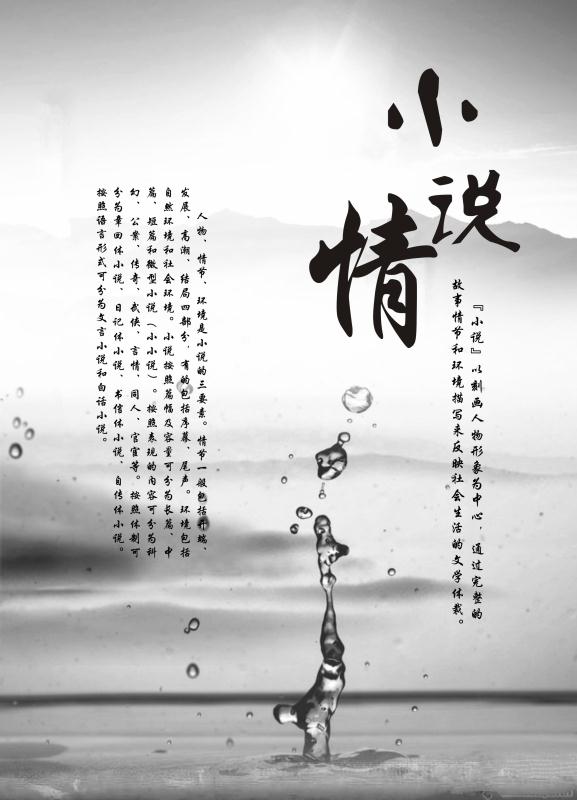 小
说
情
『小说』以刻画人物形象为中心，通过完整的
故事情节和环境描写来反映社会生活的文学体裁。
人物、情节、环境是小说的三要素。情节一般包括开端、
发展、高潮、结局四部分，有的包括序幕、尾声。环境包括
自然环境和社会环境。小说按照篇幅及容量可分为长篇、中
篇、短篇和微型小说（小小说）。按照表现的内容可分为科
幻、公案、传奇、武侠、言情、同人、官宦等。按照体制可
分为章回体小说、日记体小说、书信体小说、自传体小说。
按照语言形式可分为文言小说和白话小说。